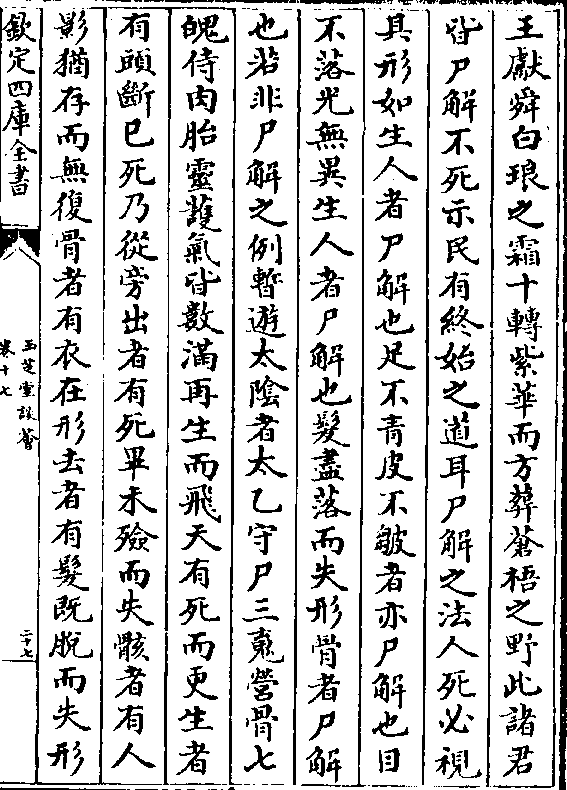 王獻舜白琅之霜十轉紫華而方葬蒼梧之野此諸君
皆尸解不死示民有終始之道耳尸解之法人死必視
其形如生人者尸解也足不青皮不皺者亦尸解也目
不落光無異生人者尸解也髮盡落而失形骨者尸解
也若非尸解之例暫遊太陰者太乙守尸三䰟營骨七
魄侍肉胎靈護氣皆數滿再生而飛天有死而更生者
有頭斷已死乃從旁出者有死畢未殮而失骸者有人
影猶存而無復骨者有衣在形去者有髮既脫而失形
欽定四庫全書
玉芝堂談薈
卷十七
二十七